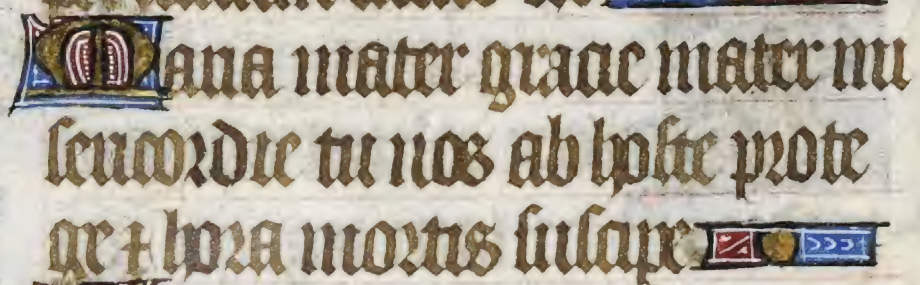 Maria mater gracie mater mi
sericordie tu nos ab hoste prote
ge ⁊ hora mortis suscipe